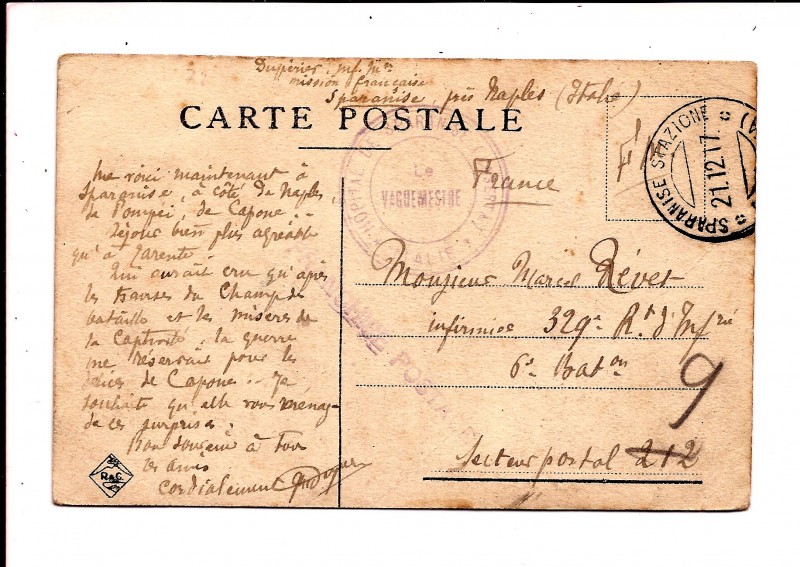 Duperier. inf. m.re
mission française
Sparanise près Naples (Italie)
CARTE POSTALE
F.M.
SPARANISE STAZIONE
21.12.17.
HÔPITAL
Le
VAGUEMESTRE
ITALIE
France
me voici maintenant à
Sparanise, à côté de Naples,
de Pompéi, de Capoue...
Séjour bien plus agréable
qu'à Tarente.
Qui aurait cru qu'après
les transes du Champ de
bataille et les misères de
la Captivité, la guerre
me réservait pour les
délices de Capoue... Je
souhaite qu'elle vous ménage
de ces surprises.
Bon souvenir à tous
les amis
cordialement
Monsieur Marcel Révet
infirmier 329e Rt d'Infrie
6e Baton
9
Secteur postal 212
POSTALE
R&C.